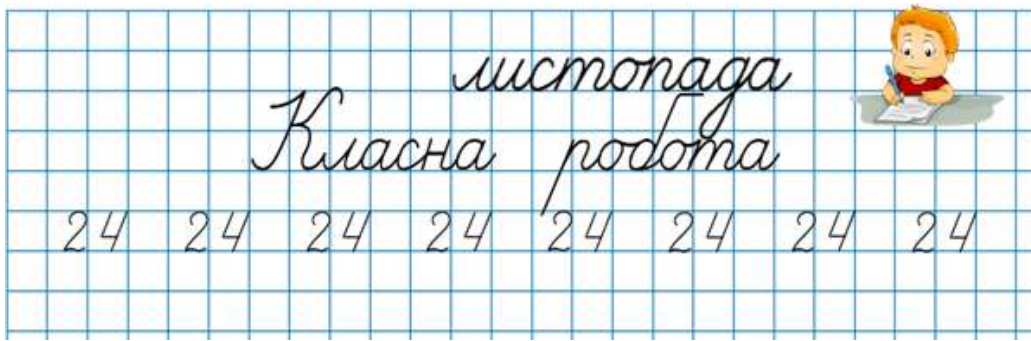 листопада
Класна робота
24 24 24 24 24 24 24 24